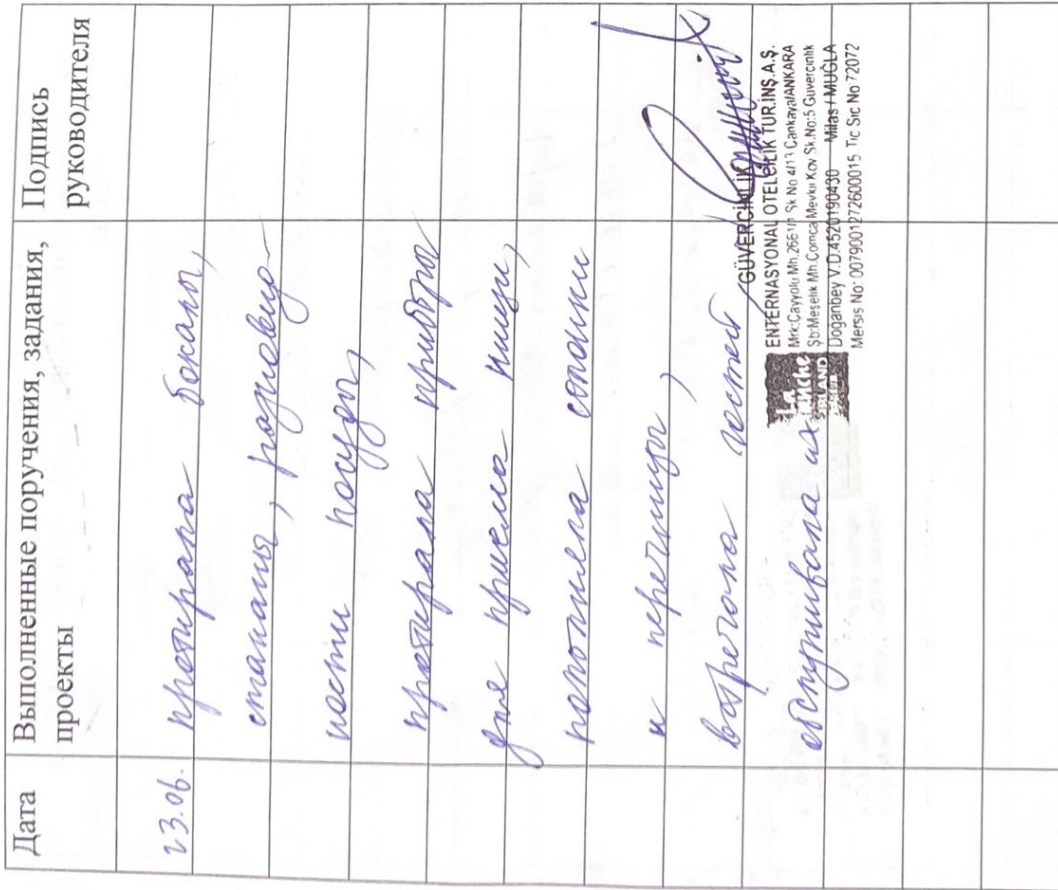 Дата
Выполненные поручения, задания,
проекты
Подпись
руководителя
23.06.
протирала бокалы,
стаканы, разновид-
ности посуды,
протирала приборы
для приема пищи,
пополнила солонки
и перечницы,
встречала гостей
обслуживала их
GÜVERCİNLİK
ENTERNASYONAL OTELCİLİK TUR.İNŞ.A.Ş.
Mrk:Çayyolu Mh.2661/1 Sk No 4/13 Çankaya/ANKARA
Şb:Meselik Mh.Comca Mevkii Kov Sk.No:5 Güvercinlik
Doğanbey V.D.4520190430 Milas / MUĞLA
Mersis No: 0079001272600015 Tic Sic No 72072
La
Blanche
ISLAND